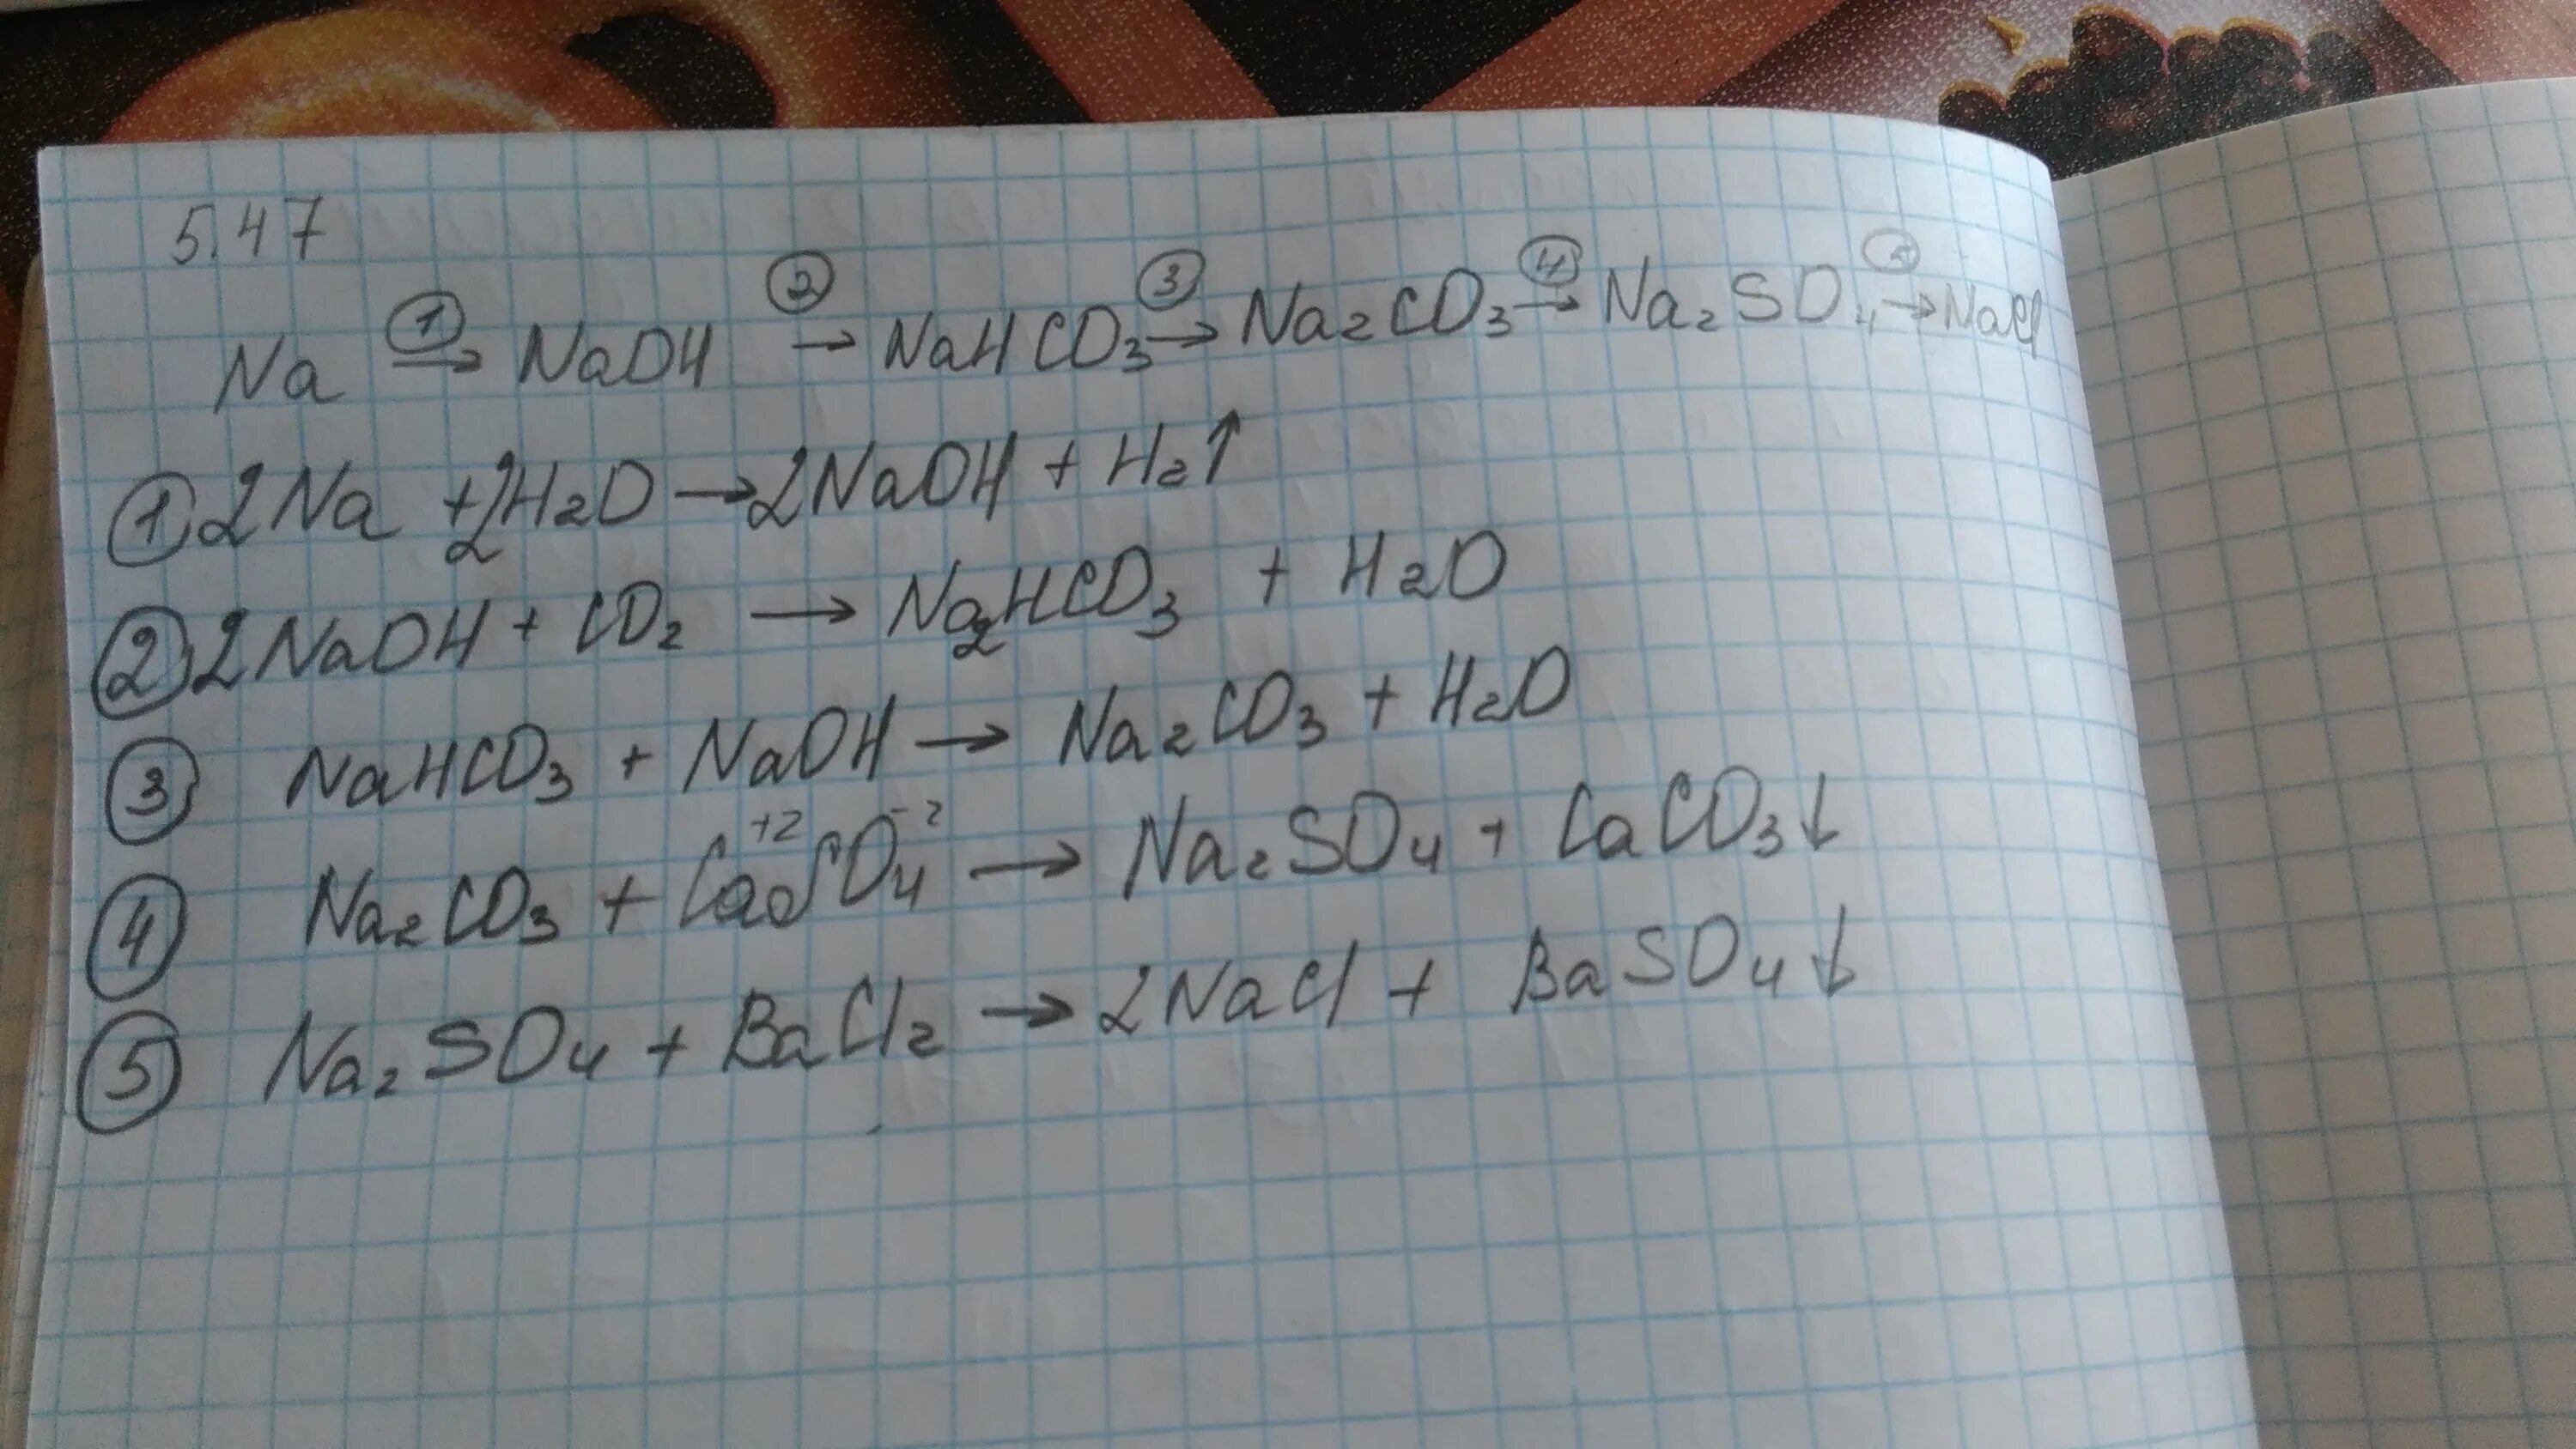 5.47
Na ①→ NaOH ②→ NaHCO₃ ③→ Na₂CO₃ ④→ Na₂SO₄ ⑤→ NaCl
① 2Na + 2H₂O → 2NaOH + H₂↑
② 2NaOH + CO₂ → Na₂HCO₃ + H₂O
③ NaHCO₃ + NaOH → Na₂CO₃ + H₂O
④ Na₂CO₃ + Ca⁺²SO₄⁻² → Na₂SO₄ + CaCO₃↓
⑤ Na₂SO₄ + BaCl₂ → 2NaCl + BaSO₄↓